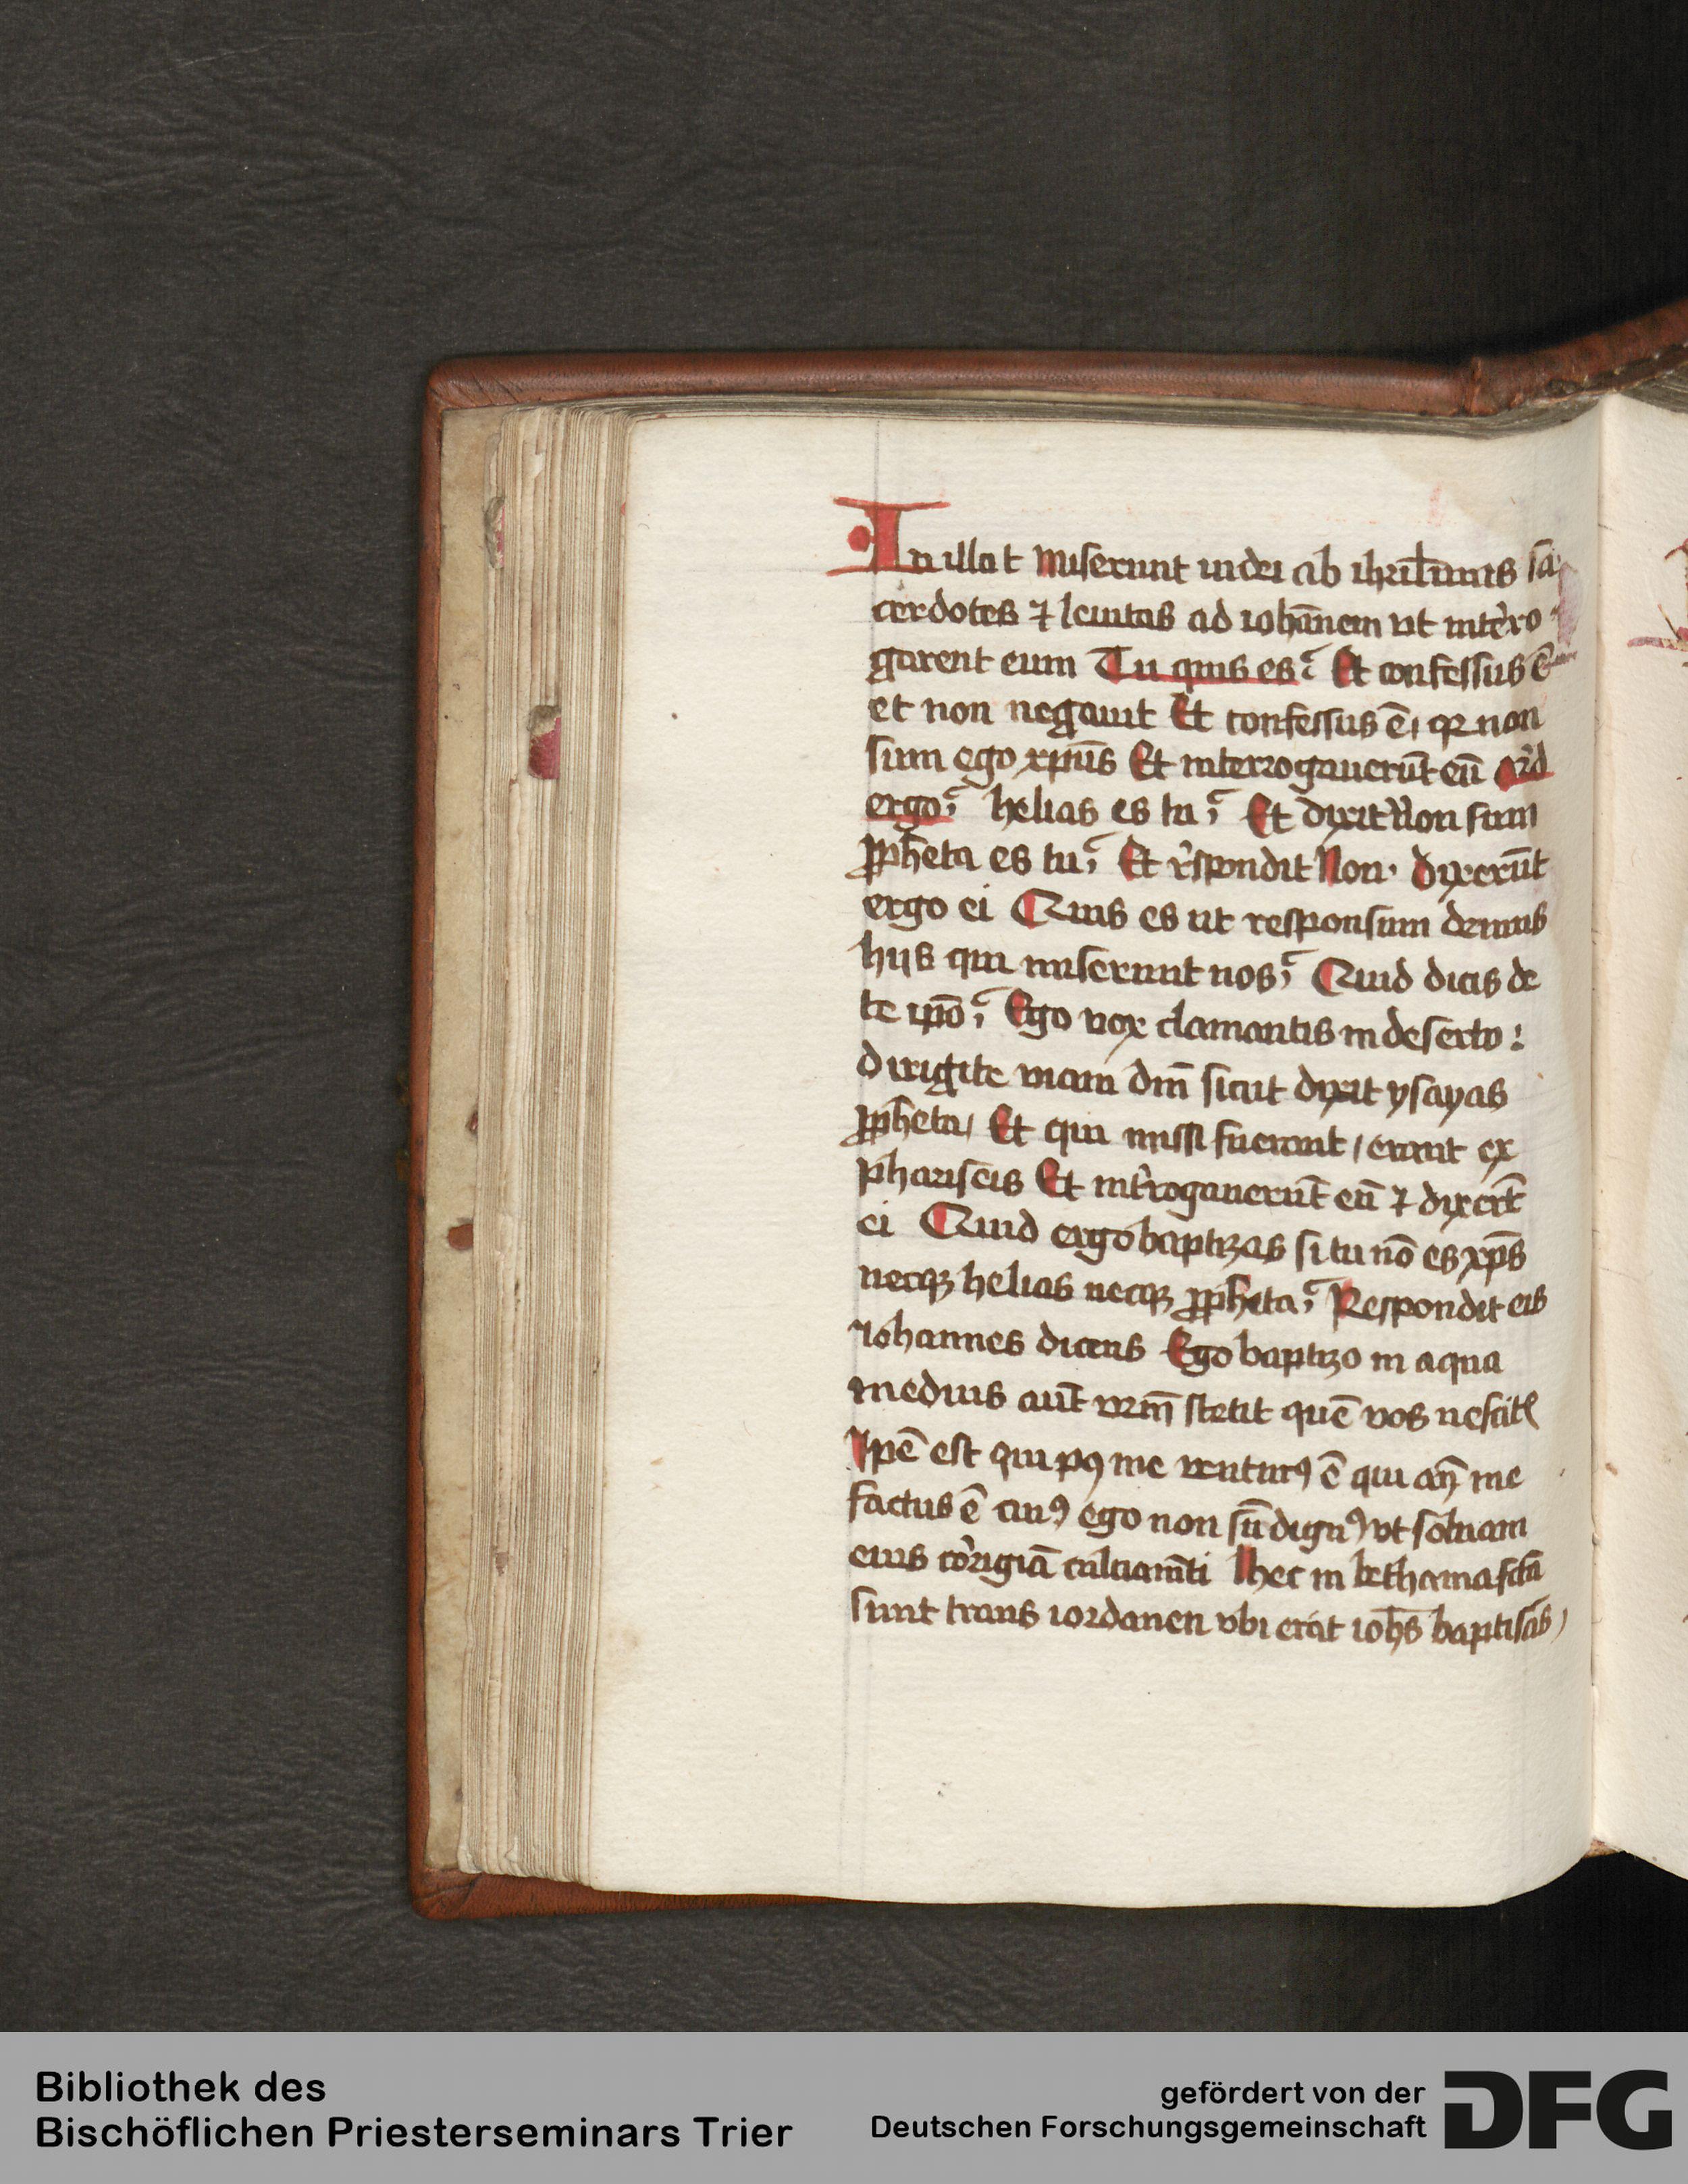 In illo t Miserunt iudei ab ih'rĺimis sa
cerdotes ⁊ leuitas ad iohānem ut inte'ro
garent eum Tu quis es? Et confessus ē
et non negauit Et confessus ē, qꝛ non
sum ego xpūs Et interrogauerūt eū q'd
ergo? helias es tu? Et dixit Non sum
ꝓpheta es tu? Et r'spondit Non. dixerūt
ergo ei Quis es ut responsum demus
hijs qui miserunt nos? Quid dicis de
te ipō? Ego vox clamantis in deserto:
dirigite viam dm̄ sicut dixit ysayas
ꝓpheta, Et qui missi fuerant, erant ex
phariseis Et int'rogauerūt eū ⁊ dixer̄t
ei Quid ergo baptizas si tu nō es xp̄s
neqꝫ helias neqꝫ ꝓpheta? Respondit eis
Iohannes dicens Ego baptizo in aqua
medius aut̄ vrm̄ stetit quē vos nescit̄
Ipē est qui pꝰ me venturꝰ ē qui an̄ me
factus ē cuiꝰ ego non sū dignꝰ vt soluam
eius co'rigiā calciam̄ti hec in bethania fc̄a
sunt trans iordanen vbi erat ioh̄s baptisās
Bibliothek des
Bischöflichen Priesterseminars Trier
gefördert von der
Deutschen Forschungsgemeinschaft
DFG